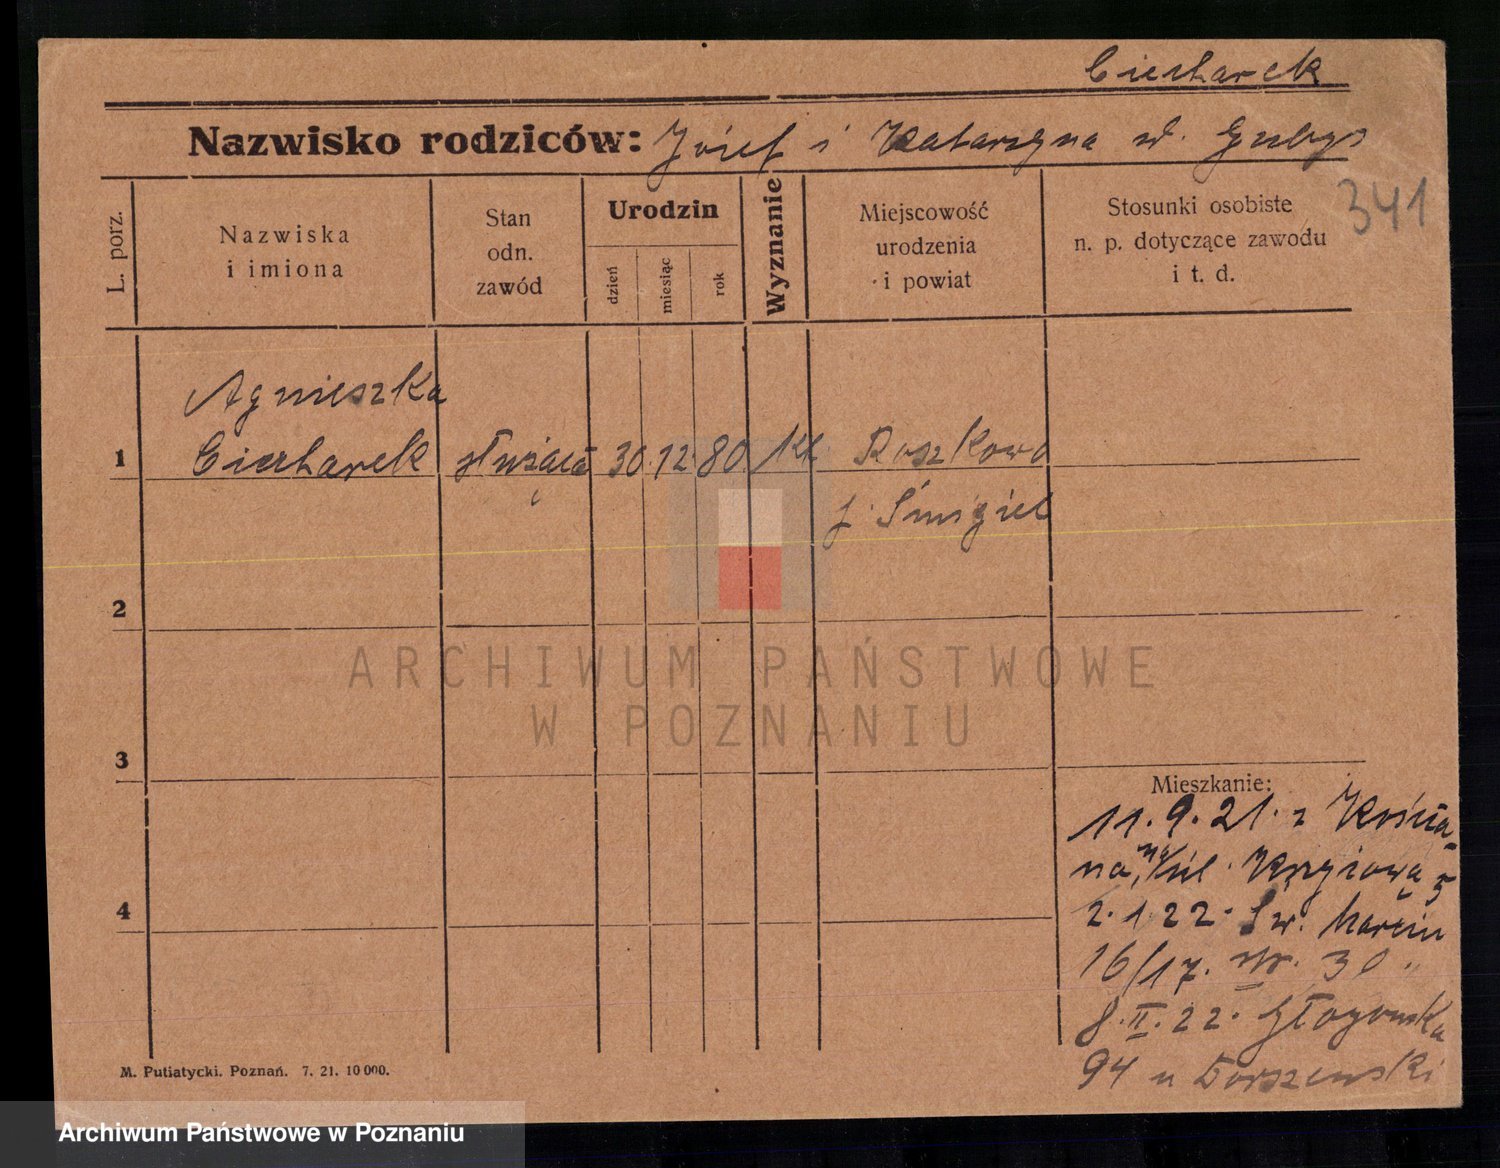 Cierharek
Nazwisko rodziców: Józef i Katarzyna
341
L. porz.
Nazwiska
i imiona
Stan
odn.
zawód
Urodzin
dzień
miesiąc
rok
Wyznanie
Miejscowość
urodzenia
i powiat
Stosunki osobiste
n. p. dotyczące zawodu
i t. d.
Agnieszka
1 Cierharek służąca 30 12 80 kt Roszkowo
p. Śmigiel
2
3
4
Mieszkanie:
11.9.21. z Kościa-
na, ul. 5
2.1.22. Św. Marcin
16/17. 30
8.II.22. Głogowska
94 u
M. Putiatycki. Poznań. 7. 21. 10 000.
ARCHIWUM PAŃSTWOWE
W POZNANIU
Archiwum Państwowe w Poznaniu